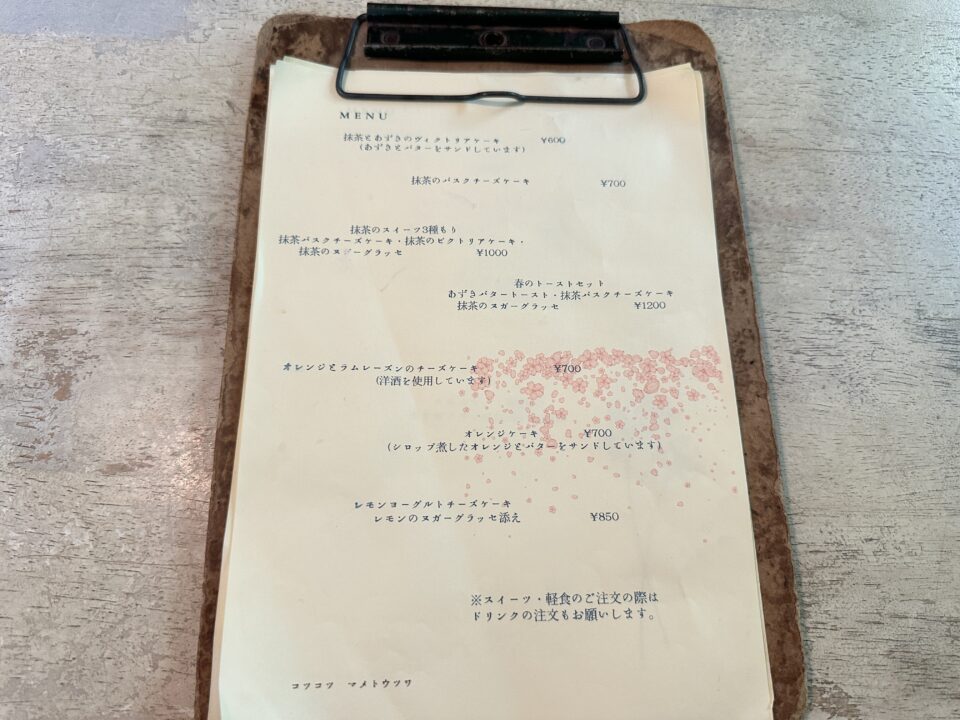 MENU
抹茶とあずきのヴィクトリアケーキ ¥600
(あずきとバターをサンドしています)
抹茶のバスクチーズケーキ ¥700
抹茶のスイーツ3種もり
抹茶バスクチーズケーキ・抹茶のビクトリアケーキ・
抹茶のヌガーグラッセ ¥1000
春のトーストセット
あずきバタートースト・抹茶バスクチーズケーキ
抹茶のヌガーグラッセ ¥1200
オレンジとラムレーズンのチーズケーキ ¥700
(洋酒を使用しています)
オレンジケーキ ¥700
(シロップ煮したオレンジとバターをサンドしています)
レモンヨーグルトチーズケーキ
レモンのヌガーグラッセ添え ¥850
※スイーツ・軽食のご注文の際は
ドリンクの注文もお願いします。
コツコツ マメトウツワ